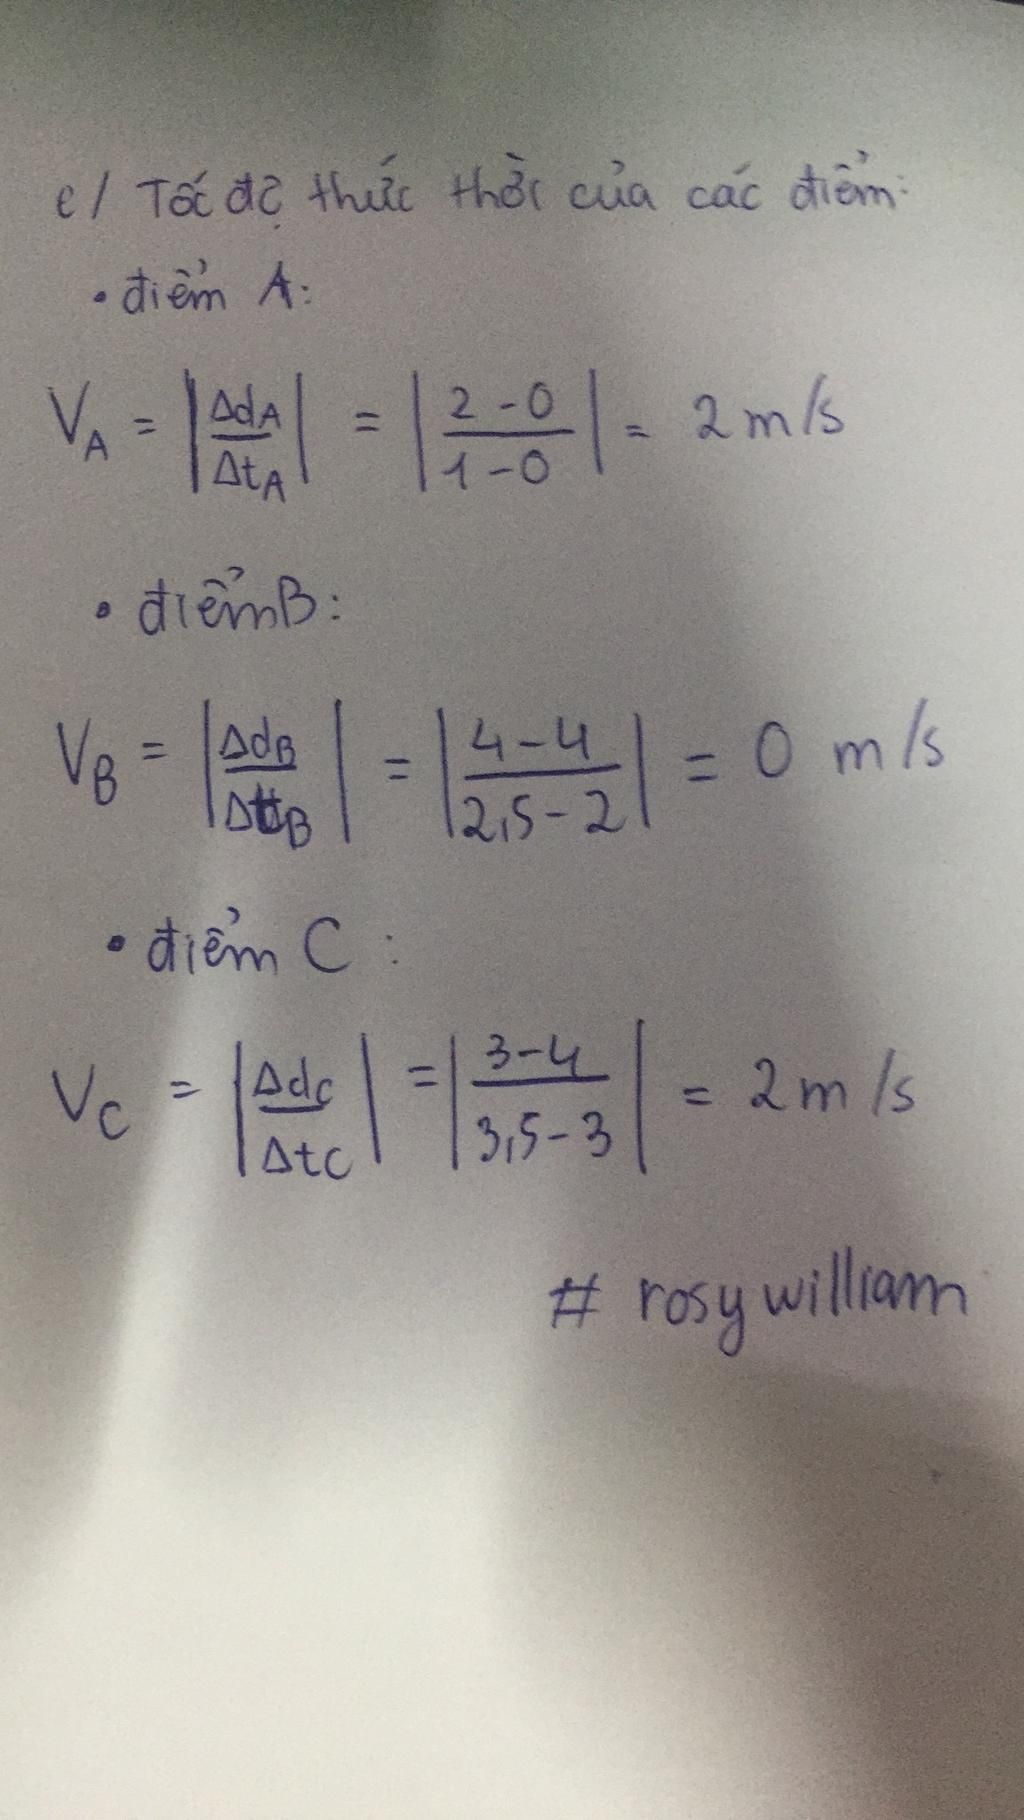 c/ Tốc độ thức thời của các điểm:
• điểm A:
V_A = |Δd_A/Δt_A| = |2-0/1-0| = 2 m/s
• điểm B:
V_B = |Δd_B/Δt_B| = |4-4/2,5-2| = 0 m/s
• điểm C :
V_C = |Δd_C/Δt_C| = |3-4/3,5-3| = 2 m/s
# rosy william